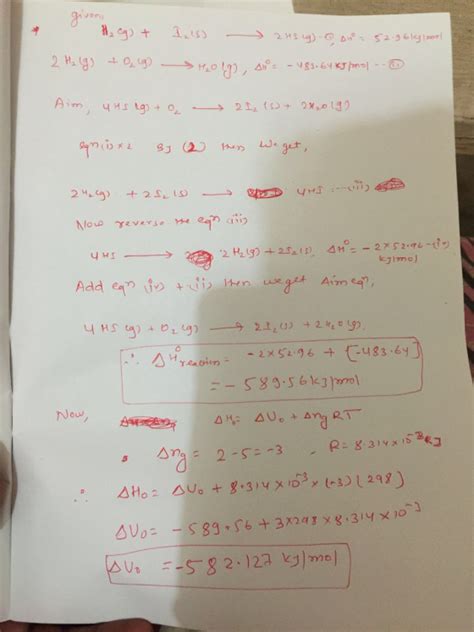 given,
* H₂(g) + I₂(s) ⟶ 2HI(g) -①, ΔH° = 52.96 kJ/mol
2H₂(g) + O₂(g) ⟶ H₂O(g), ΔH° = -483.64 KJ/mol --- (ii)
Aim, 4HI(g) + O₂ ⟶ 2I₂(s) + 2H₂O(g)
eqn(i) × 2 By (2) then we get,
2H₂(g) + 2I₂(s) ⟶ 4HI --- (iii)
Now reverse the eqn (iii)
4HI ⟶ 2H₂(g) + 2I₂(s), ΔH° = -2×52.96 -(iv)
kJ/mol
Add eqn (iv) + (ii) then we get Aim eqn,
4HI(g) + O₂(g) ⟶ 2I₂(s) + 2H₂O(g).
∴ ΔH°reaction = -2×52.96 + [-483.64]
= - 589.56 kJ/mol
Now, ΔH₀ = ΔU₀ + Δng RT
Δng = 2-5 = -3 , R = 8.314×10⁻³ KJ
∴ ΔH₀ = ΔU₀ + 8.314×10⁻³ × (-3)(298)
ΔU₀ = -589.56 + 3×298×8.314×10⁻³
ΔU₀ = -582.127 kJ/mol